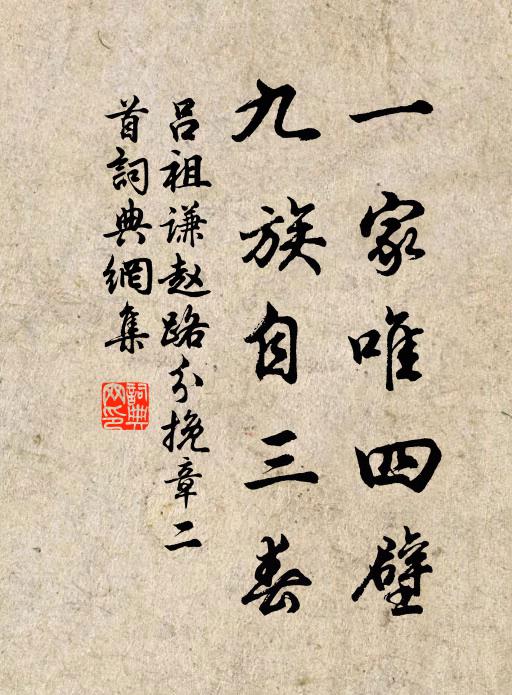 一家唯四壁
九族自三春
吕祖谦赵路分挽章二
首詞典網集
詞典網印